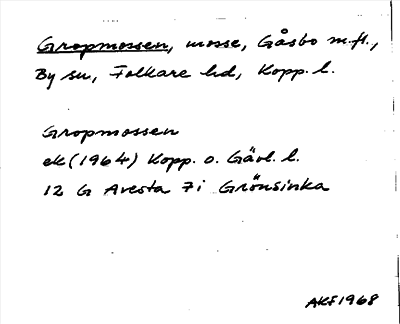 Gropmossen, mosse, Gåsbo m.fl.,
By sn, Folkare hd, Kopp. l.
Gropmossen
ek (1964) Kopp. o. Gävl. l.
12 G Avesta 7i Grönsinka
AKF 1968